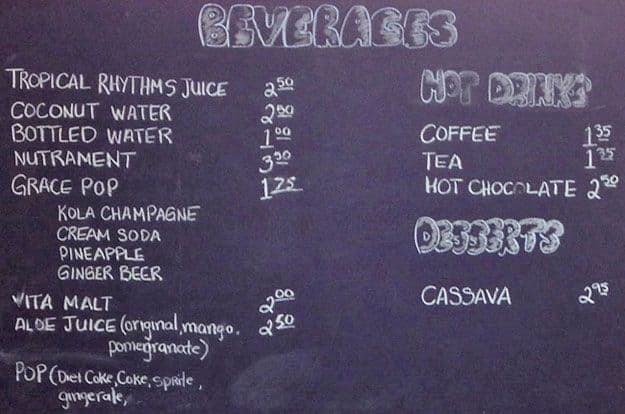 BEVERAGES
TROPICAL RHYTHMS JUICE 2.50
COCONUT WATER 2.50
BOTTLED WATER 1.00
NUTRAMENT 3.50
GRACE POP 1.75
KOLA CHAMPAGNE
CREAM SODA
PINEAPPLE
GINGER BEER
VITA MALT 2.00
ALOE JUICE (original, mango, 2.50
pomegranate)
POP (Diet Coke, Coke, sprite,
gingerale,
HOT DRINKS
COFFEE 1.35
TEA 1.35
HOT CHOCOLATE 2.50
DESSERTS
CASSAVA 2.95